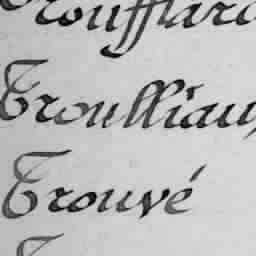 Troufflard
Troulliau,
Trouvé